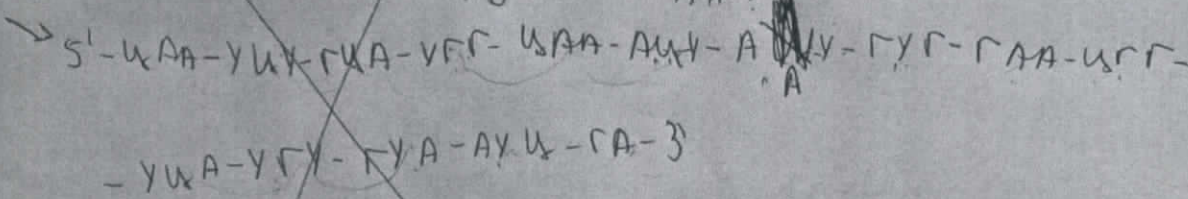 5'-ЦАА-УЦУ-ГУА-УГГ-ЦАА-АЦУ-ААУ-ГУГ-ГАА-ЦГГ-
-УЦА-УГУ-ГУА-АУЦ-ГА-3'